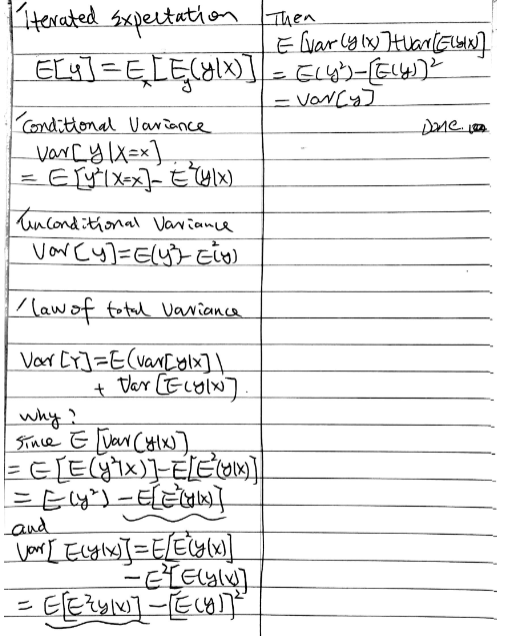 Iterated Expectation
E[y] = E_x[E_y(y|x)]
Conditional Variance
Var[y|X=x]
= E[y²|X=x] - E²(y|x)
Unconditional Variance
Var[y] = E(y²) - E²(y)
law of total variance
Var[Y] = E(Var[y|x])
+ Var[E(y|x)].
why?
Since E[Var(y|x)]
= E[E(y²|x)] - E[E²(y|x)]
= E(y²) - E[E²(y|x)]
and
Var[E(y|x)] = E[E²(y|x)]
- E²[E(y|x)]
= E[E²(y|x)] - [E(y)]²
Then
E[Var(y|x)] + Var[E(y|x)]
= E(y²) - [E(y)]²
= Var[y]
Done